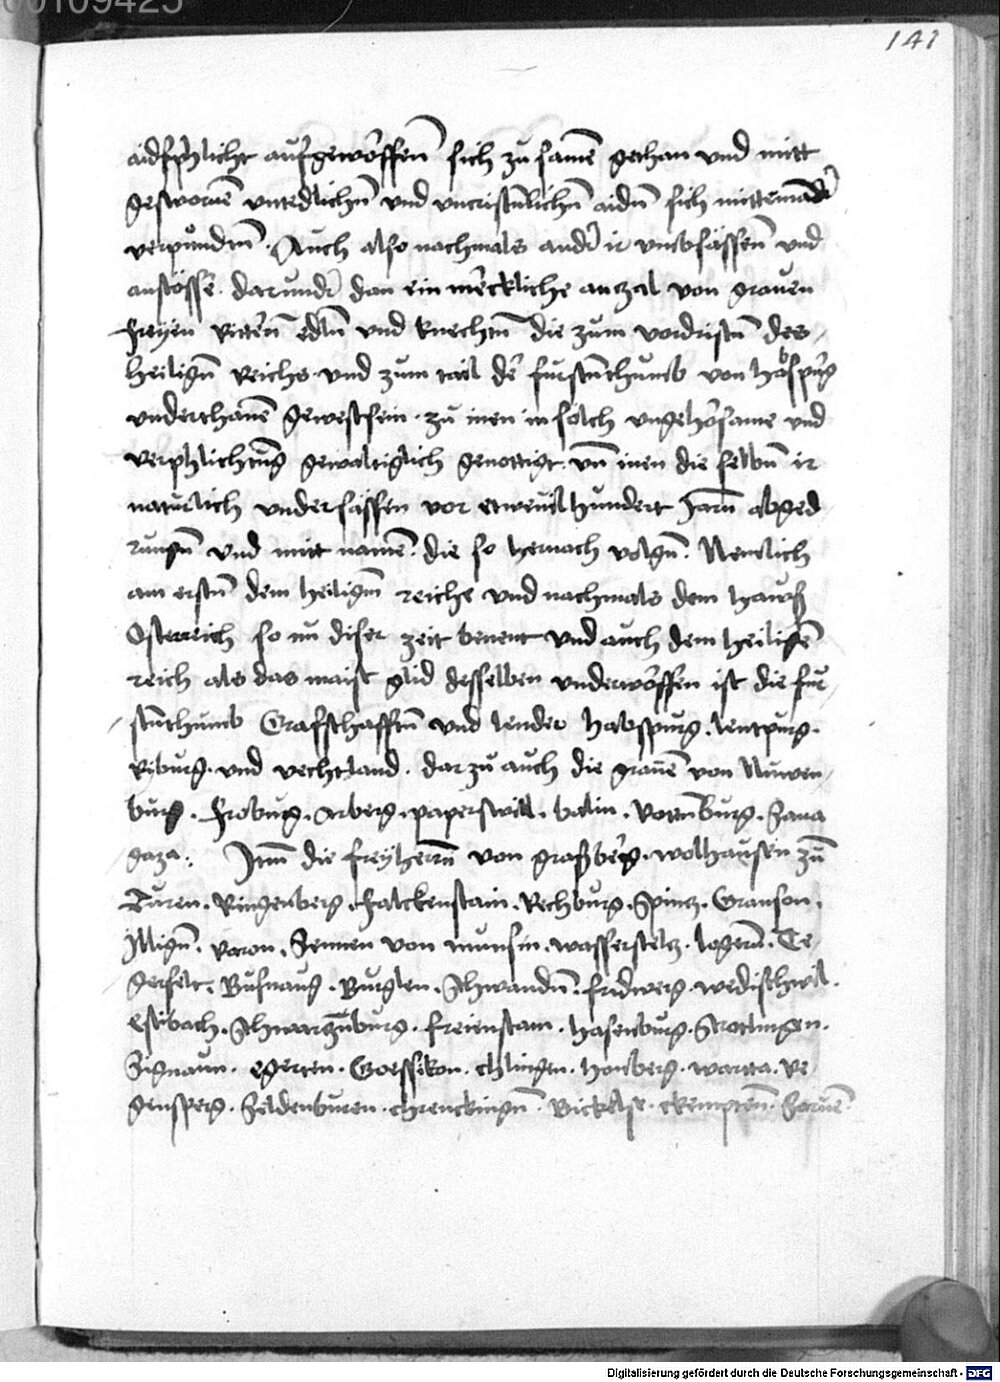 00109425
141
aidspflicht aufgeworffen sich zu samē gethan vnd mitt
geswornē vntedlichn̄ vnd vncristnlichn̄ aidn̄ sich mitteinand̄
verpundtn̄. Auch also nachmals and̄ ir vmbsässen̄ vnd
anstösse. darund̄ dan ein merckliche anczal von grauen
freyen Rittern̄ edln̄ vnd knechtn̄ die zum vordristn̄ des
heilign̄ Reichs. vnd zum tail der furstnthumb von habspurg
vnderthanē gewest sein. zu inen in solch vngehorsame vnd
verphlichtūg gewaltiglich genottigt. vn̄ inen die selbn̄ ir
naturlich vndersässen vor etweuil hundert Jarn̄ abged
rungn̄ vnd mitt namē. die so hernach volgn̄. Nemlich
am erstn̄ dem heilign̄ reiche vnd nachmals dem hawß
Osterreich so in diser zeit benent vnd auch dem heiligē
reich als das maist glid desselben vnderworffen ist die fur
stnthumb Grafschafftn̄ vnd lender habspurg. lentzpurg.
Kiburg. vnd vechtland. darzu auch die grauē von Nuwen
burg. Froburg. Arberg. paperswill. balm. Rottnburg. Sana
gaza. Itm̄ die freyherrn̄ von graßberg. wolhausen zū
Turen. Ringenberg. Falckenstain. Rechburg. Spintz. Granson.
illign̄. Raron. Sennen von munsin. wasserstelcz. logern̄. Te
gerfelt. Bufnaug. Burglen. Schwandn̄. fridwerg. wedischwil.
Estibach. Schwartzūburg. freienstain. hasenburg. Strotlingen.
Signaum. Egerten. Goessikon. chlingen. honberg. wartta. Re
gensperg. Seldenburen. chrenckingn̄. Bickelse. ckemptēn.
Digitalisierung gefördert durch die Deutsche Forschungsgemeinschaft - DFG